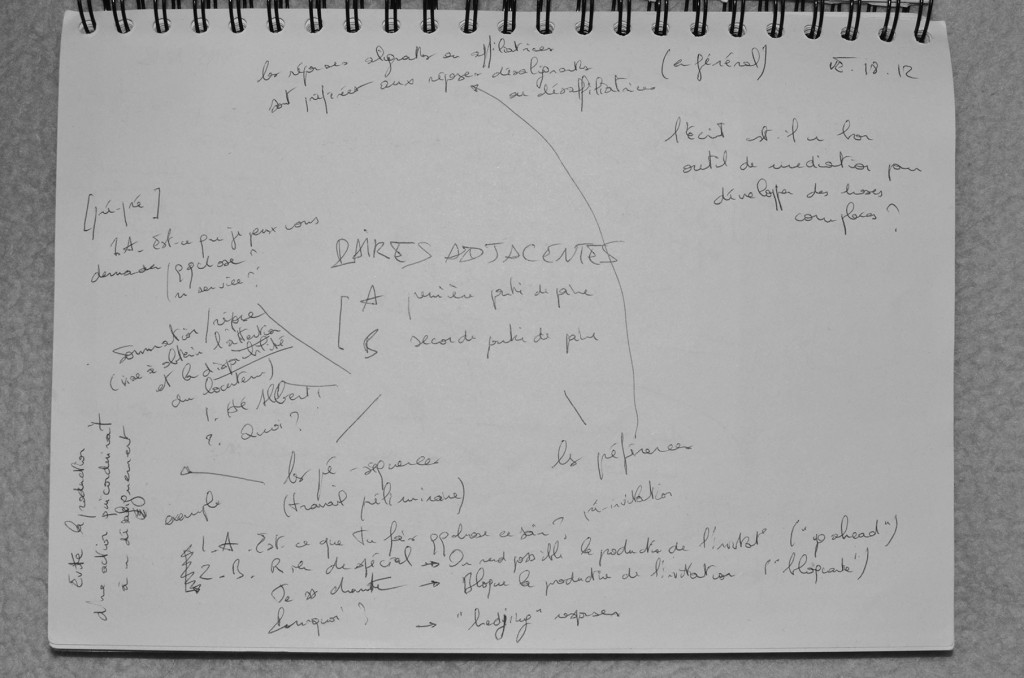 les réponses alignantes ou affiliatrices
sont préférées aux réponses désalignantes
ou désaffiliatrices
(en général)
VE. 18. 12
l'écrit est-il un bon
outil de mediation pour
développer des choses
complexes ?
[pré-pré]
1A. Est-ce que je peux vous
demander qqchose ?
un service ?
PAIRES ADJACENTES
A première partie de paire
B seconde partie de paire
Sommation/réponse
(vise à obtenir l'attention
et la disponibilité
du locuteur)
1. Hé Albert !
2. Quoi ?
Les pré-séquences
(travail préliminaire)
les préférences
Evite la production
d'une action qui conduirait
à un désalignement
exemple
pré-invitation
1. A. Est-ce que Tu fais qqchose ce soir ?
2. B. Rien de spécial → On rend possible la production de l'invitat° ("go ahead")
Je → Bloque la production de l'invitation ("blocante")
Pourquoi ? → "hedging" responses